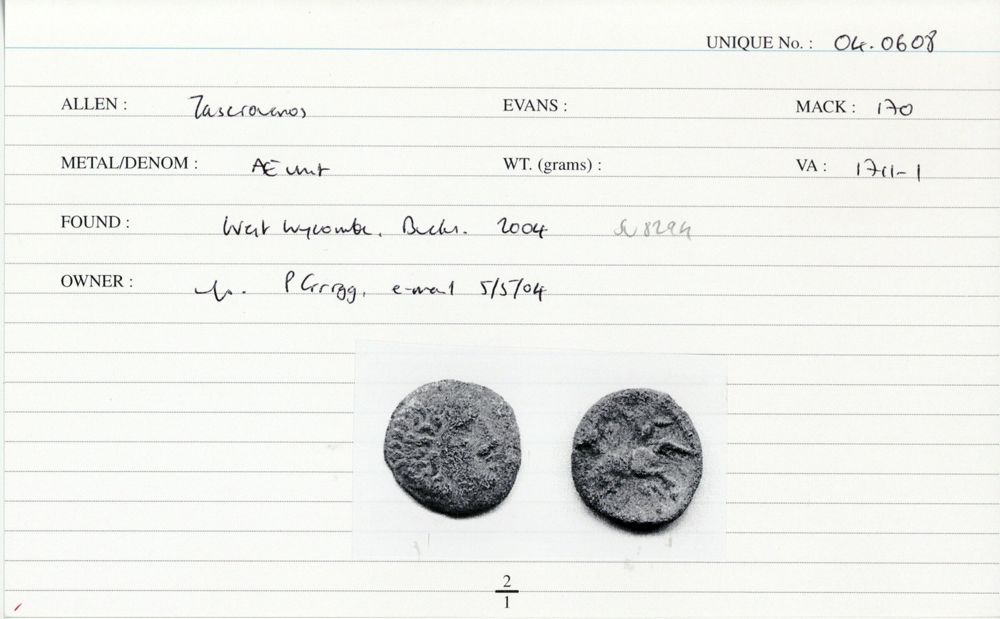 UNIQUE No. : 04.0608
ALLEN : Tasciovanos EVANS : MACK : 170
METAL/DENOM : AE unit WT. (grams) : VA : 1711-1
FOUND : West Wycombe, Bucks. 2004 SU 8294
OWNER : P Grigg, e-mail 5/5/04
2
1